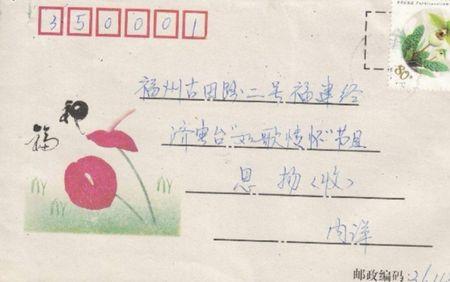 350001
80
福州古田路二号福建经
济电台"如歌情怀"节目
思扬(收)
祝
福
内详
邮政编码: